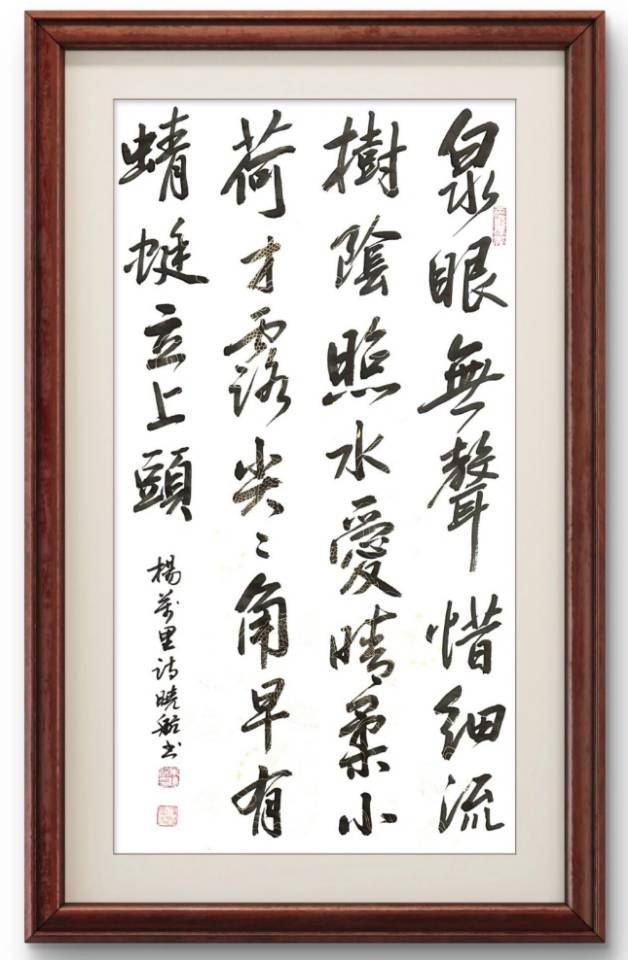 泉眼無聲惜細流
樹陰照水愛晴柔小
荷才露尖〻角早有
蜻蜓立上頭
楊萬里詩曉航書